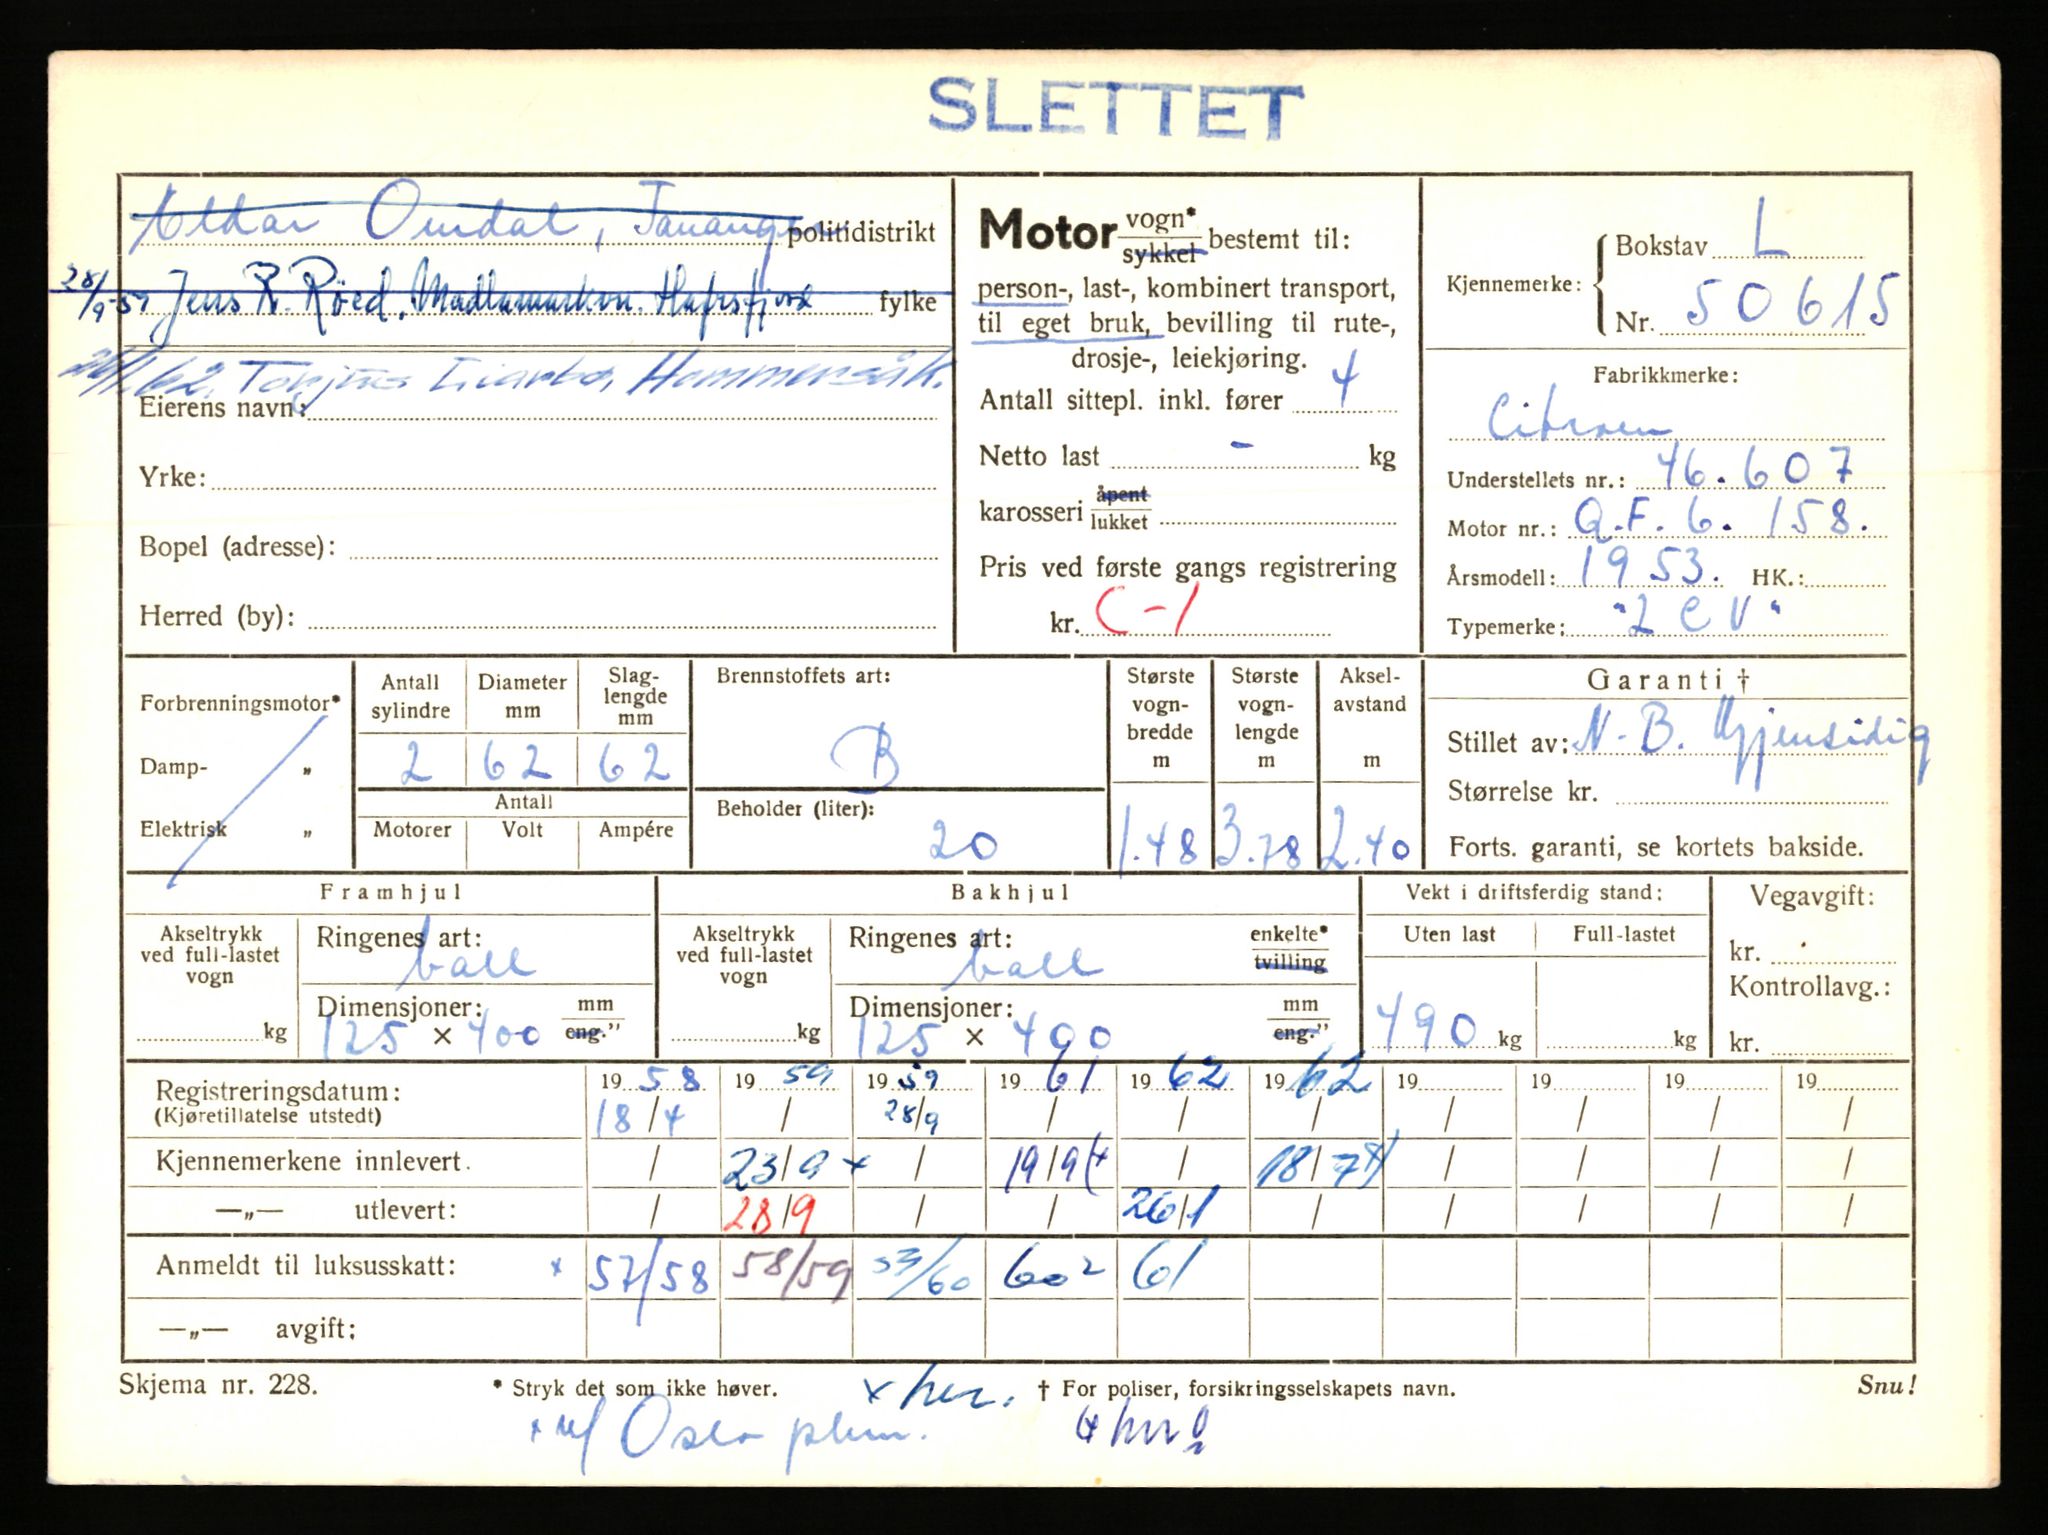 SLETTET
Omdal, Tananger politidistrikt
28/9-59 Jens R. Röed. Madlamarken. Hafrsfjord fylke
62. Hommersåk.
Eierens navn:
Yrke:
Bopel (adresse):
Herred (by):
Motor vogn* sykkel bestemt til:
person-, last-, kombinert transport,
til eget bruk, bevilling til rute-,
drosje-, leiekjøring.
Antall sittepl. inkl. fører 4
Netto last - kg
karosseri åpent lukket
Pris ved første gangs registrering
kr. C-1
Kjennemerke: Bokstav L
Nr. 50615
Fabrikkmerke:
Citroen
Understellets nr.: 46.607
Motor nr.: Q.F.6.158.
Årsmodell: 1953. HK.:
Typemerke: "2 CV"
Forbrenningsmotor*
Damp- „
Elektrisk „
Antall sylindre 2
Diameter mm 62
Slag-lengde mm 62
Antall
Motorer Volt Ampére
Brennstoffets art:
B
Beholder (liter):
20
Største vogn-bredde m 1.48
Største vogn-lengde m 3.78
Aksel-avstand m 2.40
Garanti †
Stillet av: N.B. Gjensidig
Størrelse kr.
Forts. garanti, se kortets bakside.
Framhjul
Akseltrykk ved full-lastet vogn kg
Ringenes art: ball
Dimensjoner: mm eng."
125 × 400
Bakhjul
Akseltrykk ved full-lastet vogn kg
Ringenes art: ball enkelte* tvilling
Dimensjoner: mm eng."
125 × 400
Vekt i driftsferdig stand:
Uten last Full-lastet
490 kg kg
Vegavgift:
kr.
Kontrollavg.:
kr.
Registreringsdatum: 1958 1959 1959 1961 1962 1962 19 19 19 19
(Kjøretillatelse utstedt) 18/4 / 28/9 / / / / / / /
Kjennemerkene innlevert. / 23/9 x / 19/9 (x / 18/7 x) / / / /
—„— utlevert: / 28/9 / / 26/1 / / / / /
Anmeldt til luksusskatt: x 57/58 58/59 59/60 60² 61
—„— avgift:
Skjema nr. 228. * Stryk det som ikke høver. x her. † For poliser, forsikringsselskapets navn. Snu!
x Oslo